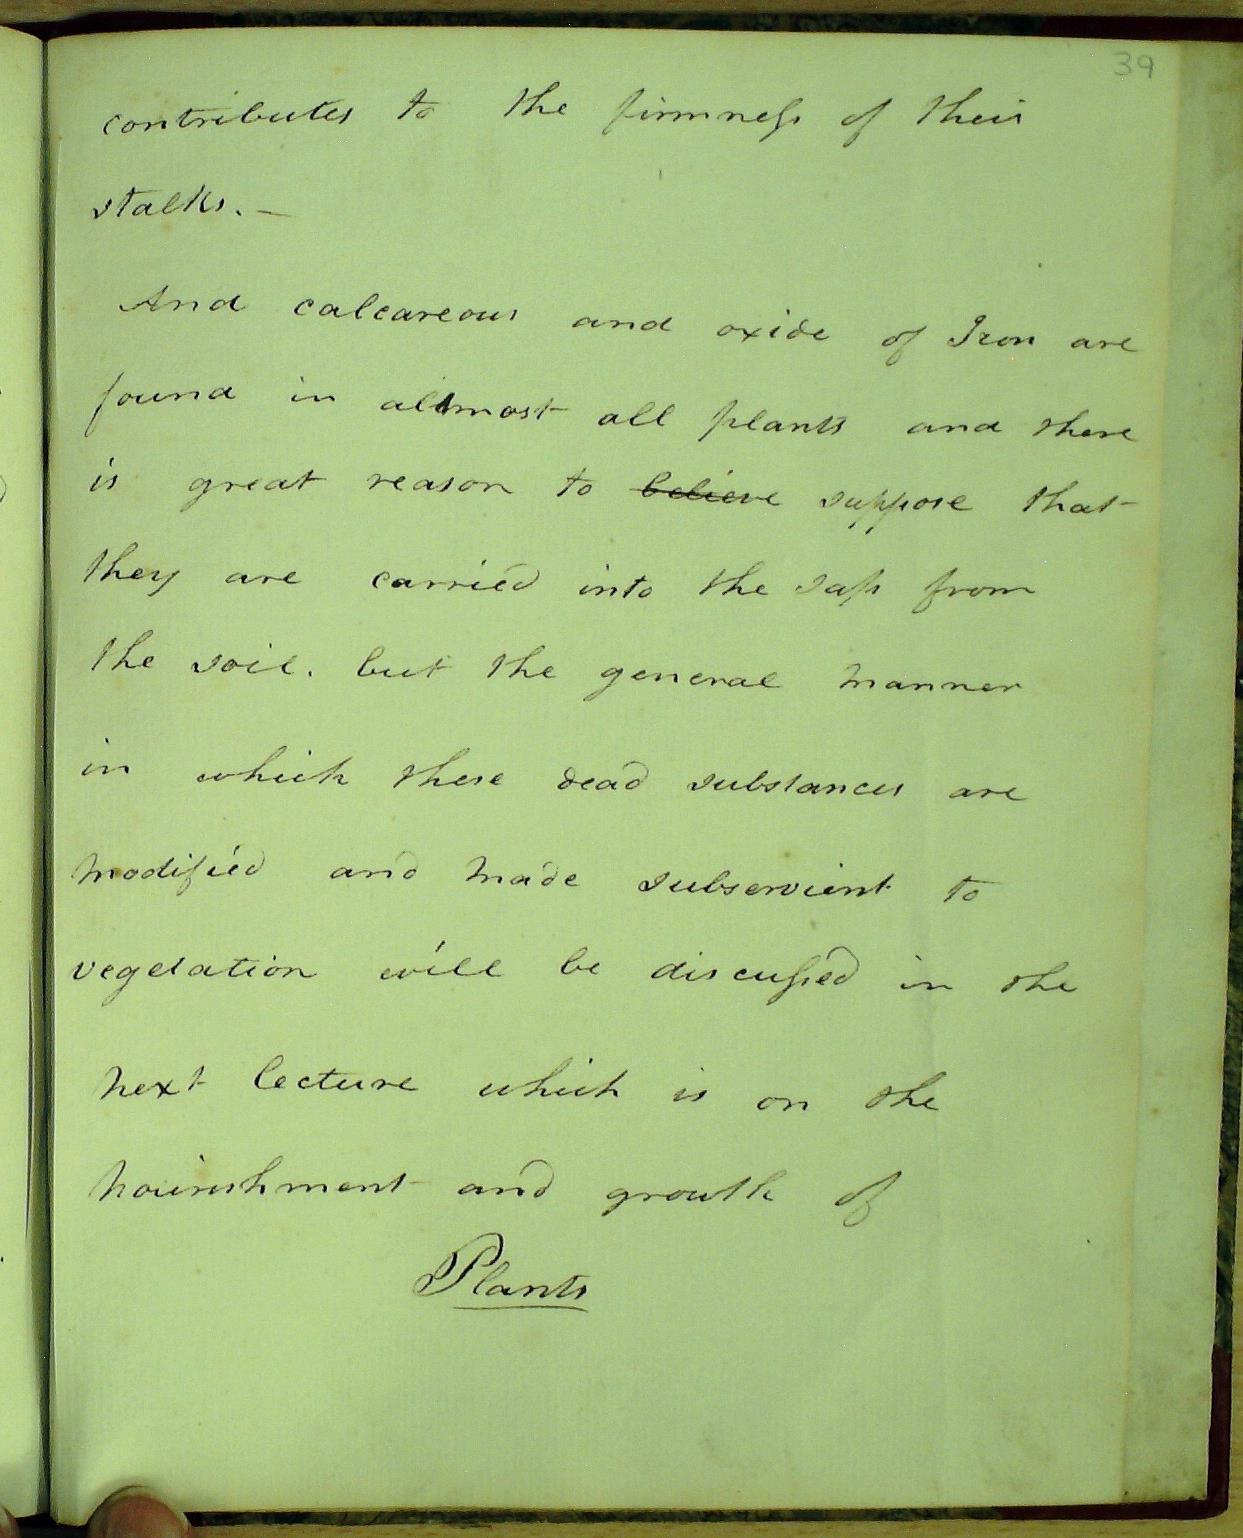 39
contributes to the firmness of their
stalks. —
And calcareous and oxide of Iron are
found in almost all plants and there
is great reason to believe suppose that
they are carried into the sap from
the soil. but the general manner
in which these dead substances are
modified and made subservient to
vegetation will be discussed in the
next lecture which is on the
nourishment and growth of
Plants